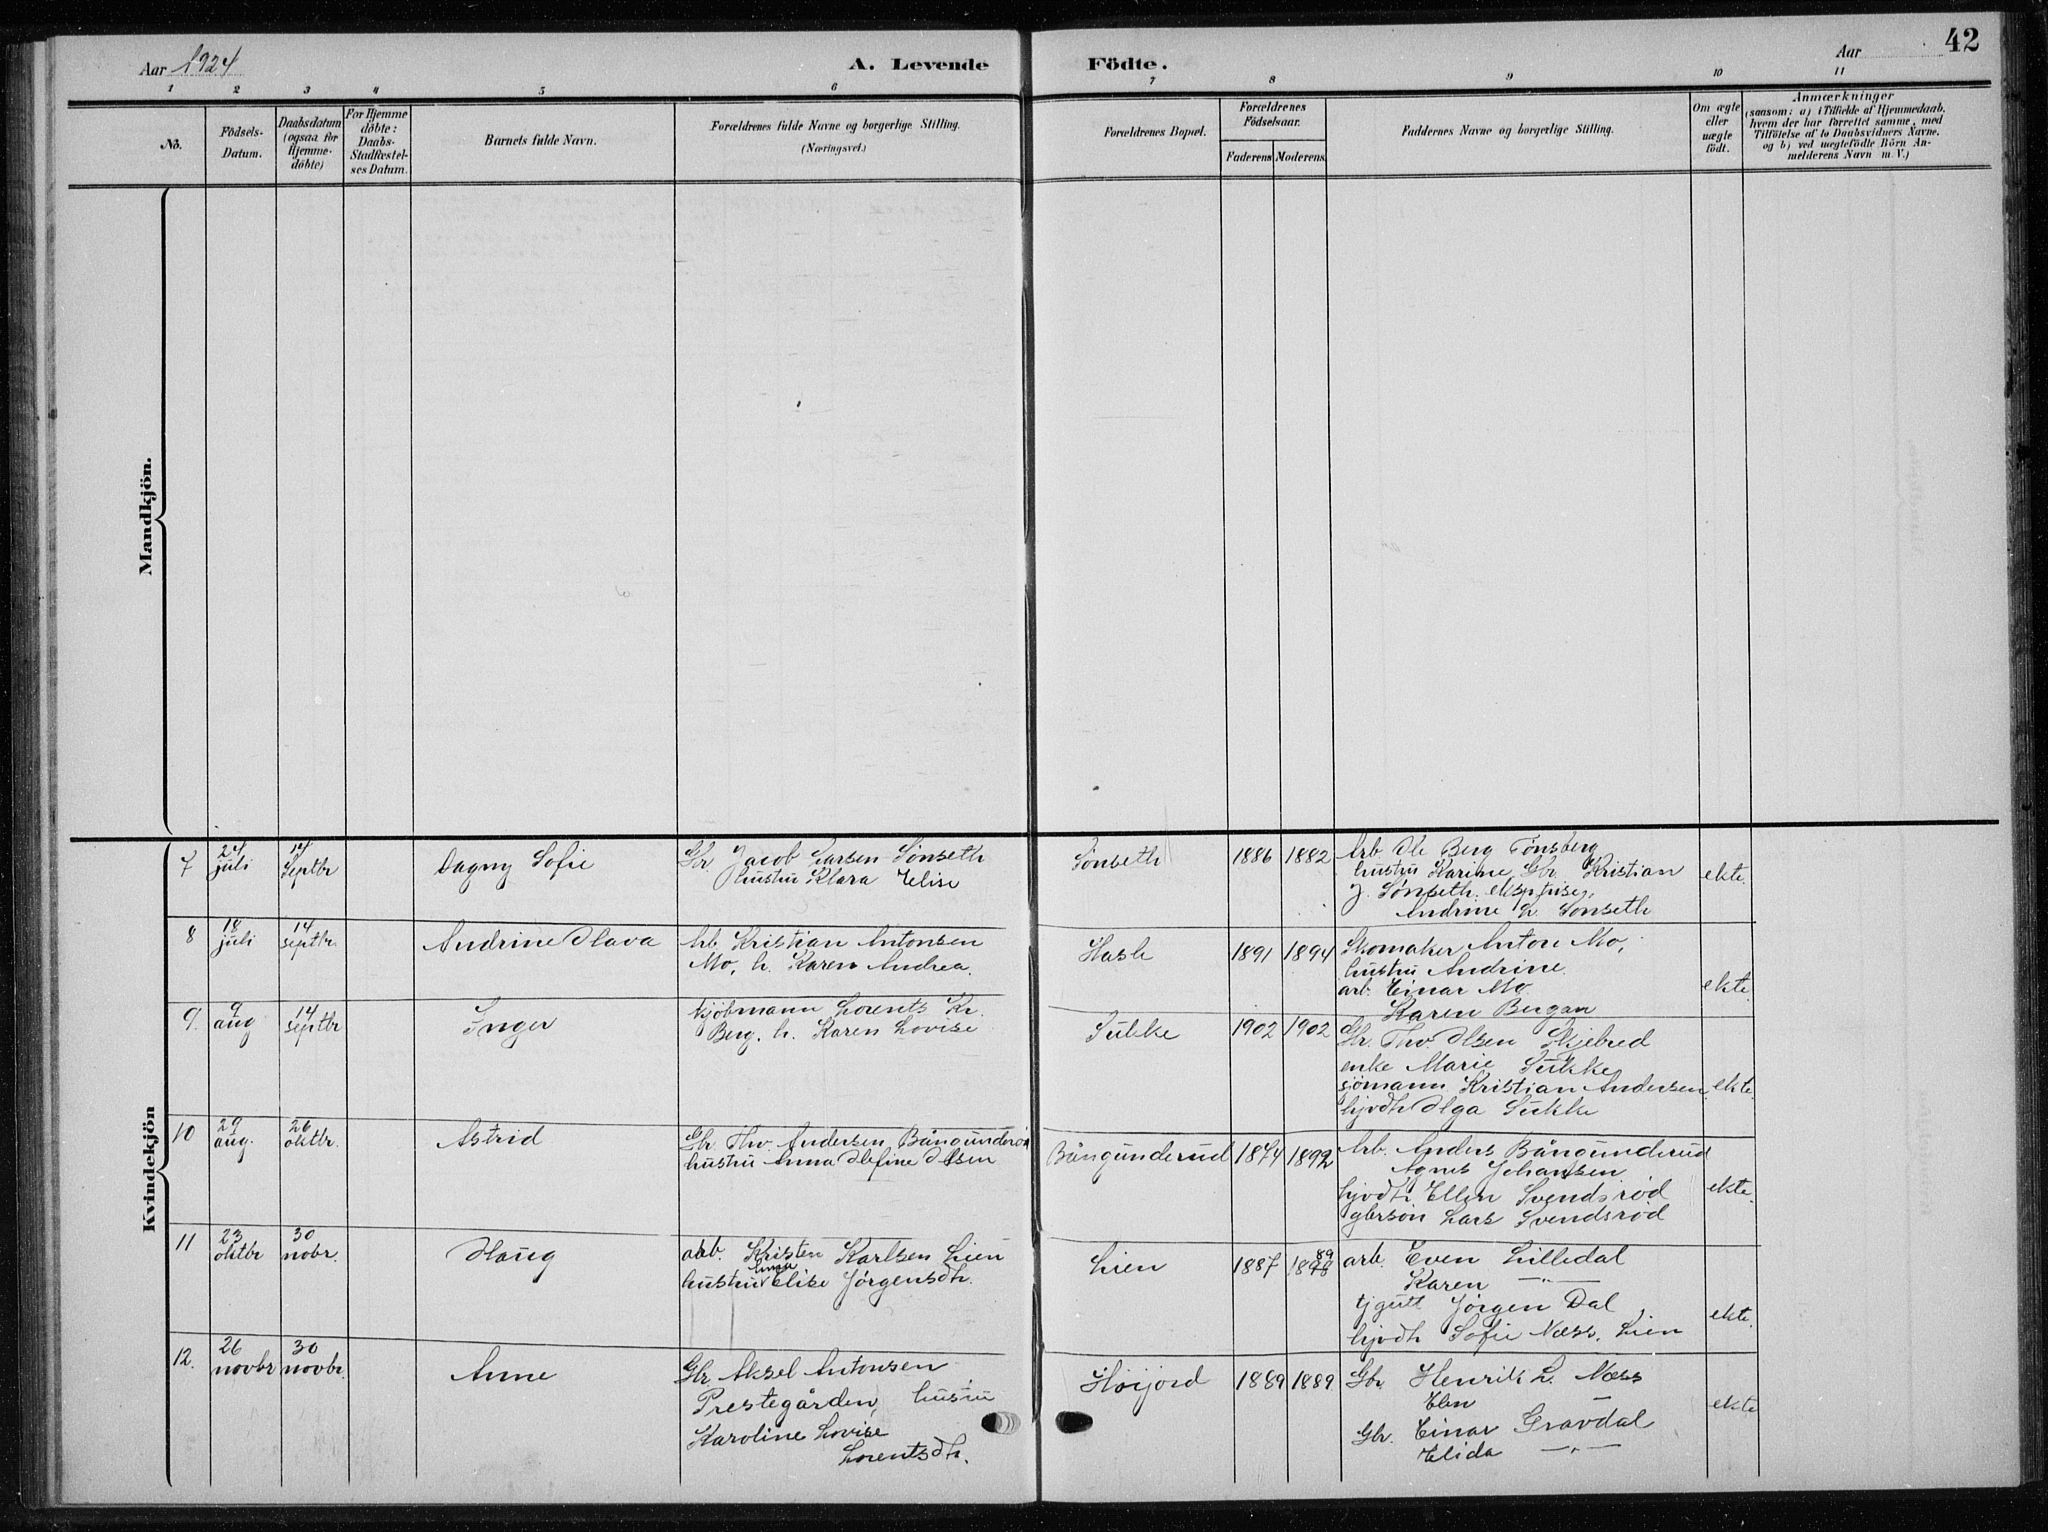 Aar 1924
A. Levende Födte.
Aar
42
1 2 3 4 5 6 7 8 9 10 11
No.
Födsels-Datum.
Daabsdatum (ogsaa for Hjemme-döbte)
For Hjemme döbte: Daabs-Stadfæstel-ses Datum.
Barnets fulde Navn.
Forældrenes fulde Navne og borgerlige Stilling.
(Næringsvei.)
Forældrenes Bopæl.
Forældrenes Födselsaar.
Faderens Moderens.
Faddernes Navne og borgerlige Stilling.
Om ægte eller uægte födt.
Anmærkninger
(saasom: a) i Tilfælde af Hjemmedaab, hvem der har forrettet samme, med Tilföielse af to Daabsvidners Navne. og b) ved uægtefödte Börn An-melderens Navn m. V.)
Mandkjön.
Kvindekjön
7 24 juli 14 Septbr Dagny Sofie
Gbr. Jacob Larsen Sönseth
hustru Klara Elise
Sönseth 1886 1882
Arb Ole Berg Tönsberg
hustru Karine Gbr. Kristian
J. Sönseth
Andrine L. Sönseth
ekte.
8 18 juli 14 septbr. Andrine Olava
Arb Kristian Antonsen
Mo, h. Karen Andrea.
Hasle 1891 1894
Skomaker Anton Mo,
hustru Andrine.
arb. Einar Mo.
Karen Bergan
ekte.
9. 9 aug 14 septbr Inger
kjöbmann Lorents Kr.
Berg, h. Karen Lovise
Sukke 1902 1902
Gbr. Thv. Olsen Skjebred
enke Marie Sukke
sjömann Kristian Andersen
hjvdh Olga Sukke
ekte.
10 29 aug. 26 oktbr. Astrid
Gbr. Thv. Andersen Bångunderöd
hustru Anna Olefine Olsen
Bångunderud 1874 1892
Arb. Anders Bångunderud
Agnes Johansen
hjvdh Ellen Svendsröd
gbrsön Lars Svendsröd
ekte.
11 23 oktbr 30 nobr. Haug
arb. Kristen Karlsen Lien
hustru Anna Elise Jörgensdh.
Lien 1887 1889
arb. Even Lilledal
Karen —"—
tjgutt Jörgen Dal
hjvdh Sofie Næss. Lien
ekte.
12. 26 novbr 30 novbr. Anne
Gbr Aksel Antonsen
Prestegården, hustru
Karoline Lovise
Lorentsdh.
Höijord 1889 1889
Gbr. Henrik L. Næss
Elen —
Gbr. Einar Gravdal
Elida —"—
ekte